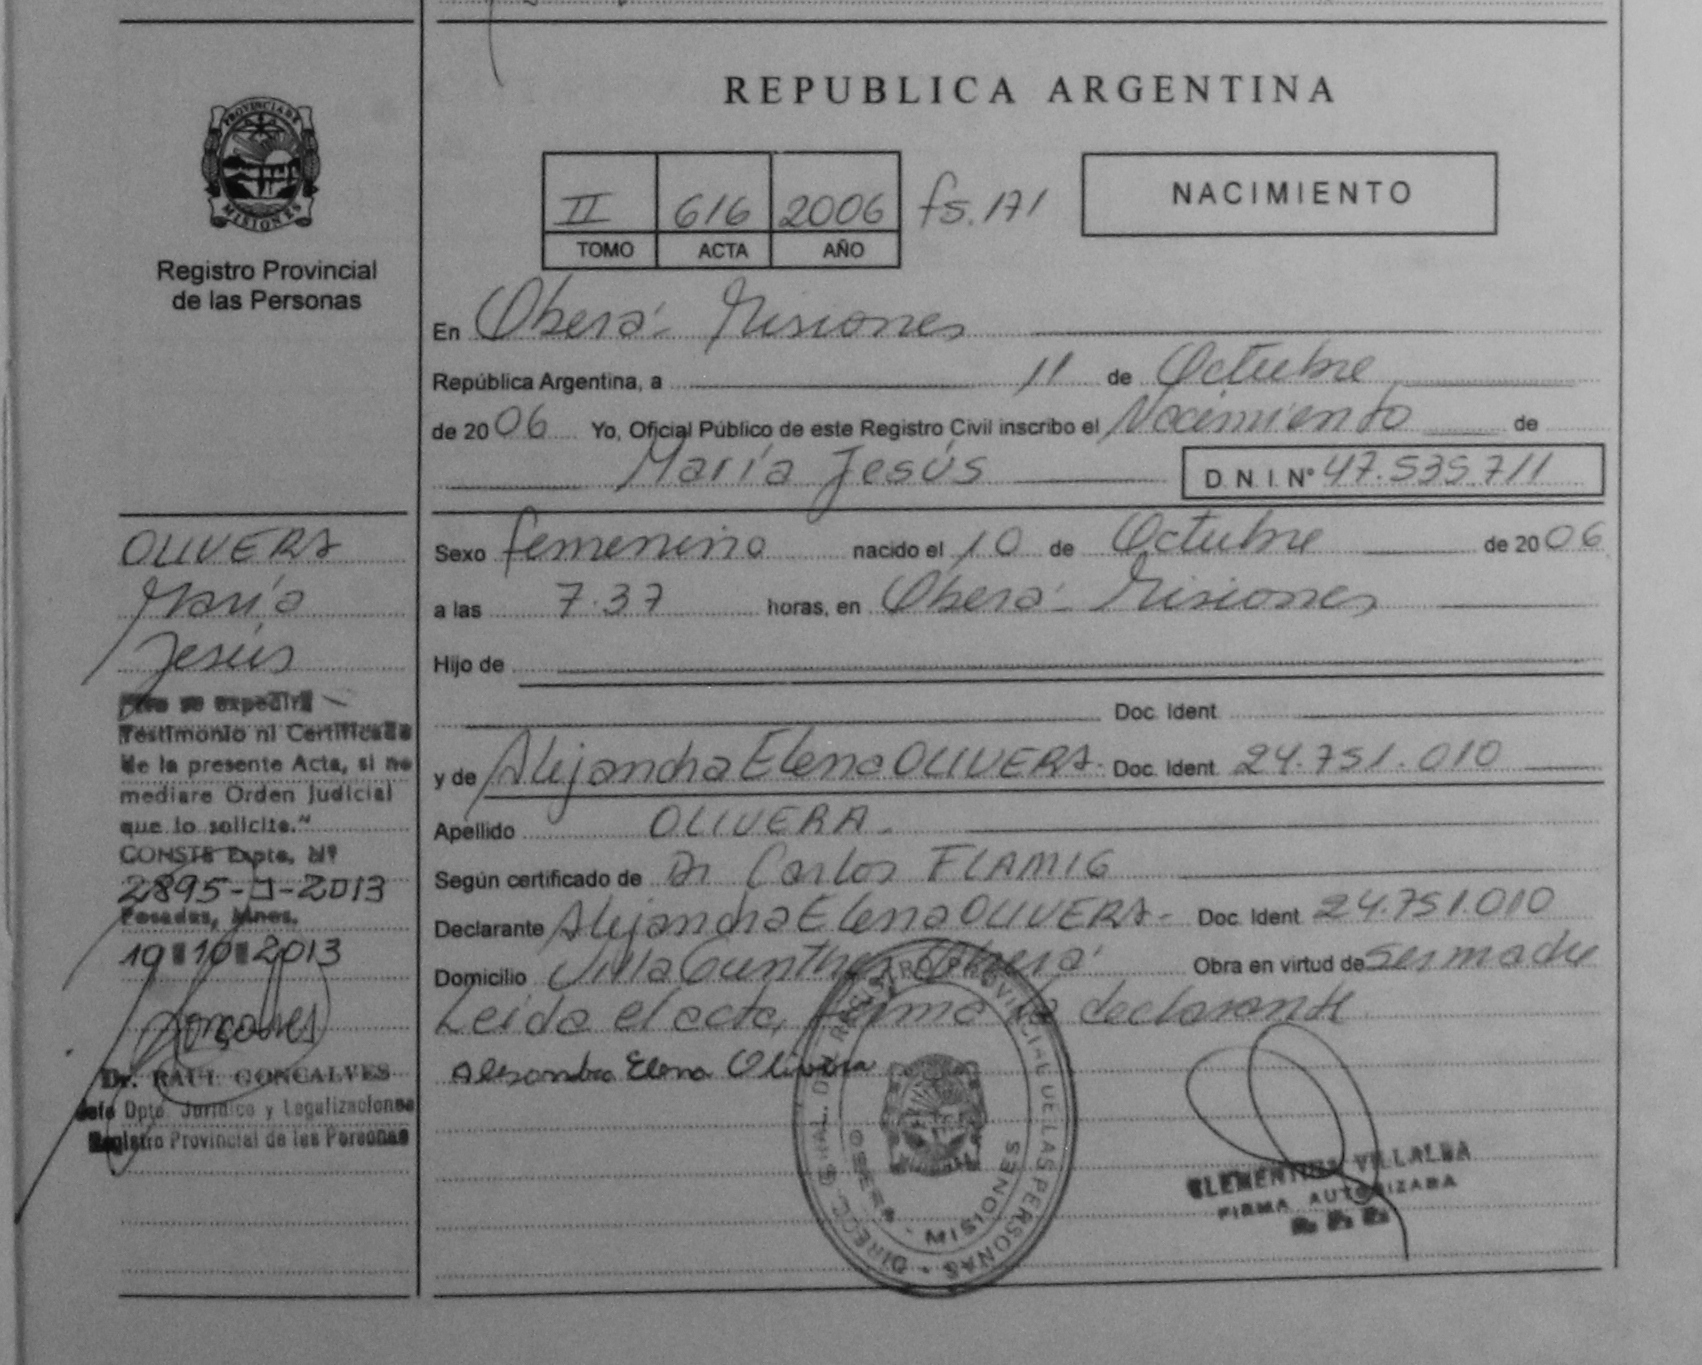 REPUBLICA ARGENTINA
PROVINCIA DE
MISIONES
Registro Provincial
de las Personas
II 616 2006 fs. 171
TOMO ACTA AÑO
NACIMIENTO
En Oberá - Misiones
República Argentina, a 11 de Octubre
de 2006 Yo, Oficial Público de este Registro Civil inscribo el Nacimiento de
María Jesús D.N.I. Nº 47.535.711
Sexo femenino nacido el 10 de Octubre de 2006
a las 7.37 horas, en Oberá - Misiones
Hijo de
Doc. Ident.
y de Alejandra Elena OLIVERA - Doc. Ident. 24.751.010
Apellido OLIVERA
Según certificado de Dr Carlos FLAMIG
Declarante Alejandra Elena OLIVERA - Doc. Ident. 24.751.010
Domicilio Villa Gunther Oberá Obra en virtud de ser madre
Leída el acta, firma la declarante
Alejandra Elena Olivera
OLIVERA
María
Jesús
se expedirá
Testimonio ni Certificado
de la presente Acta, si no
mediare Orden Judicial
que lo solicite."
CONSTE Expte. Nº
2895-J-2013
Posadas, Mnes.
10 10 2013
Goncalves
Dr. RAUL GONCALVES
Jefe Dpto. Jurídico y Legalizaciones
Registro Provincial de las Personas
DE LAS PERSONAS
OBERA - MISIONES
VILLALBA
FIRMA AUTORIZADA